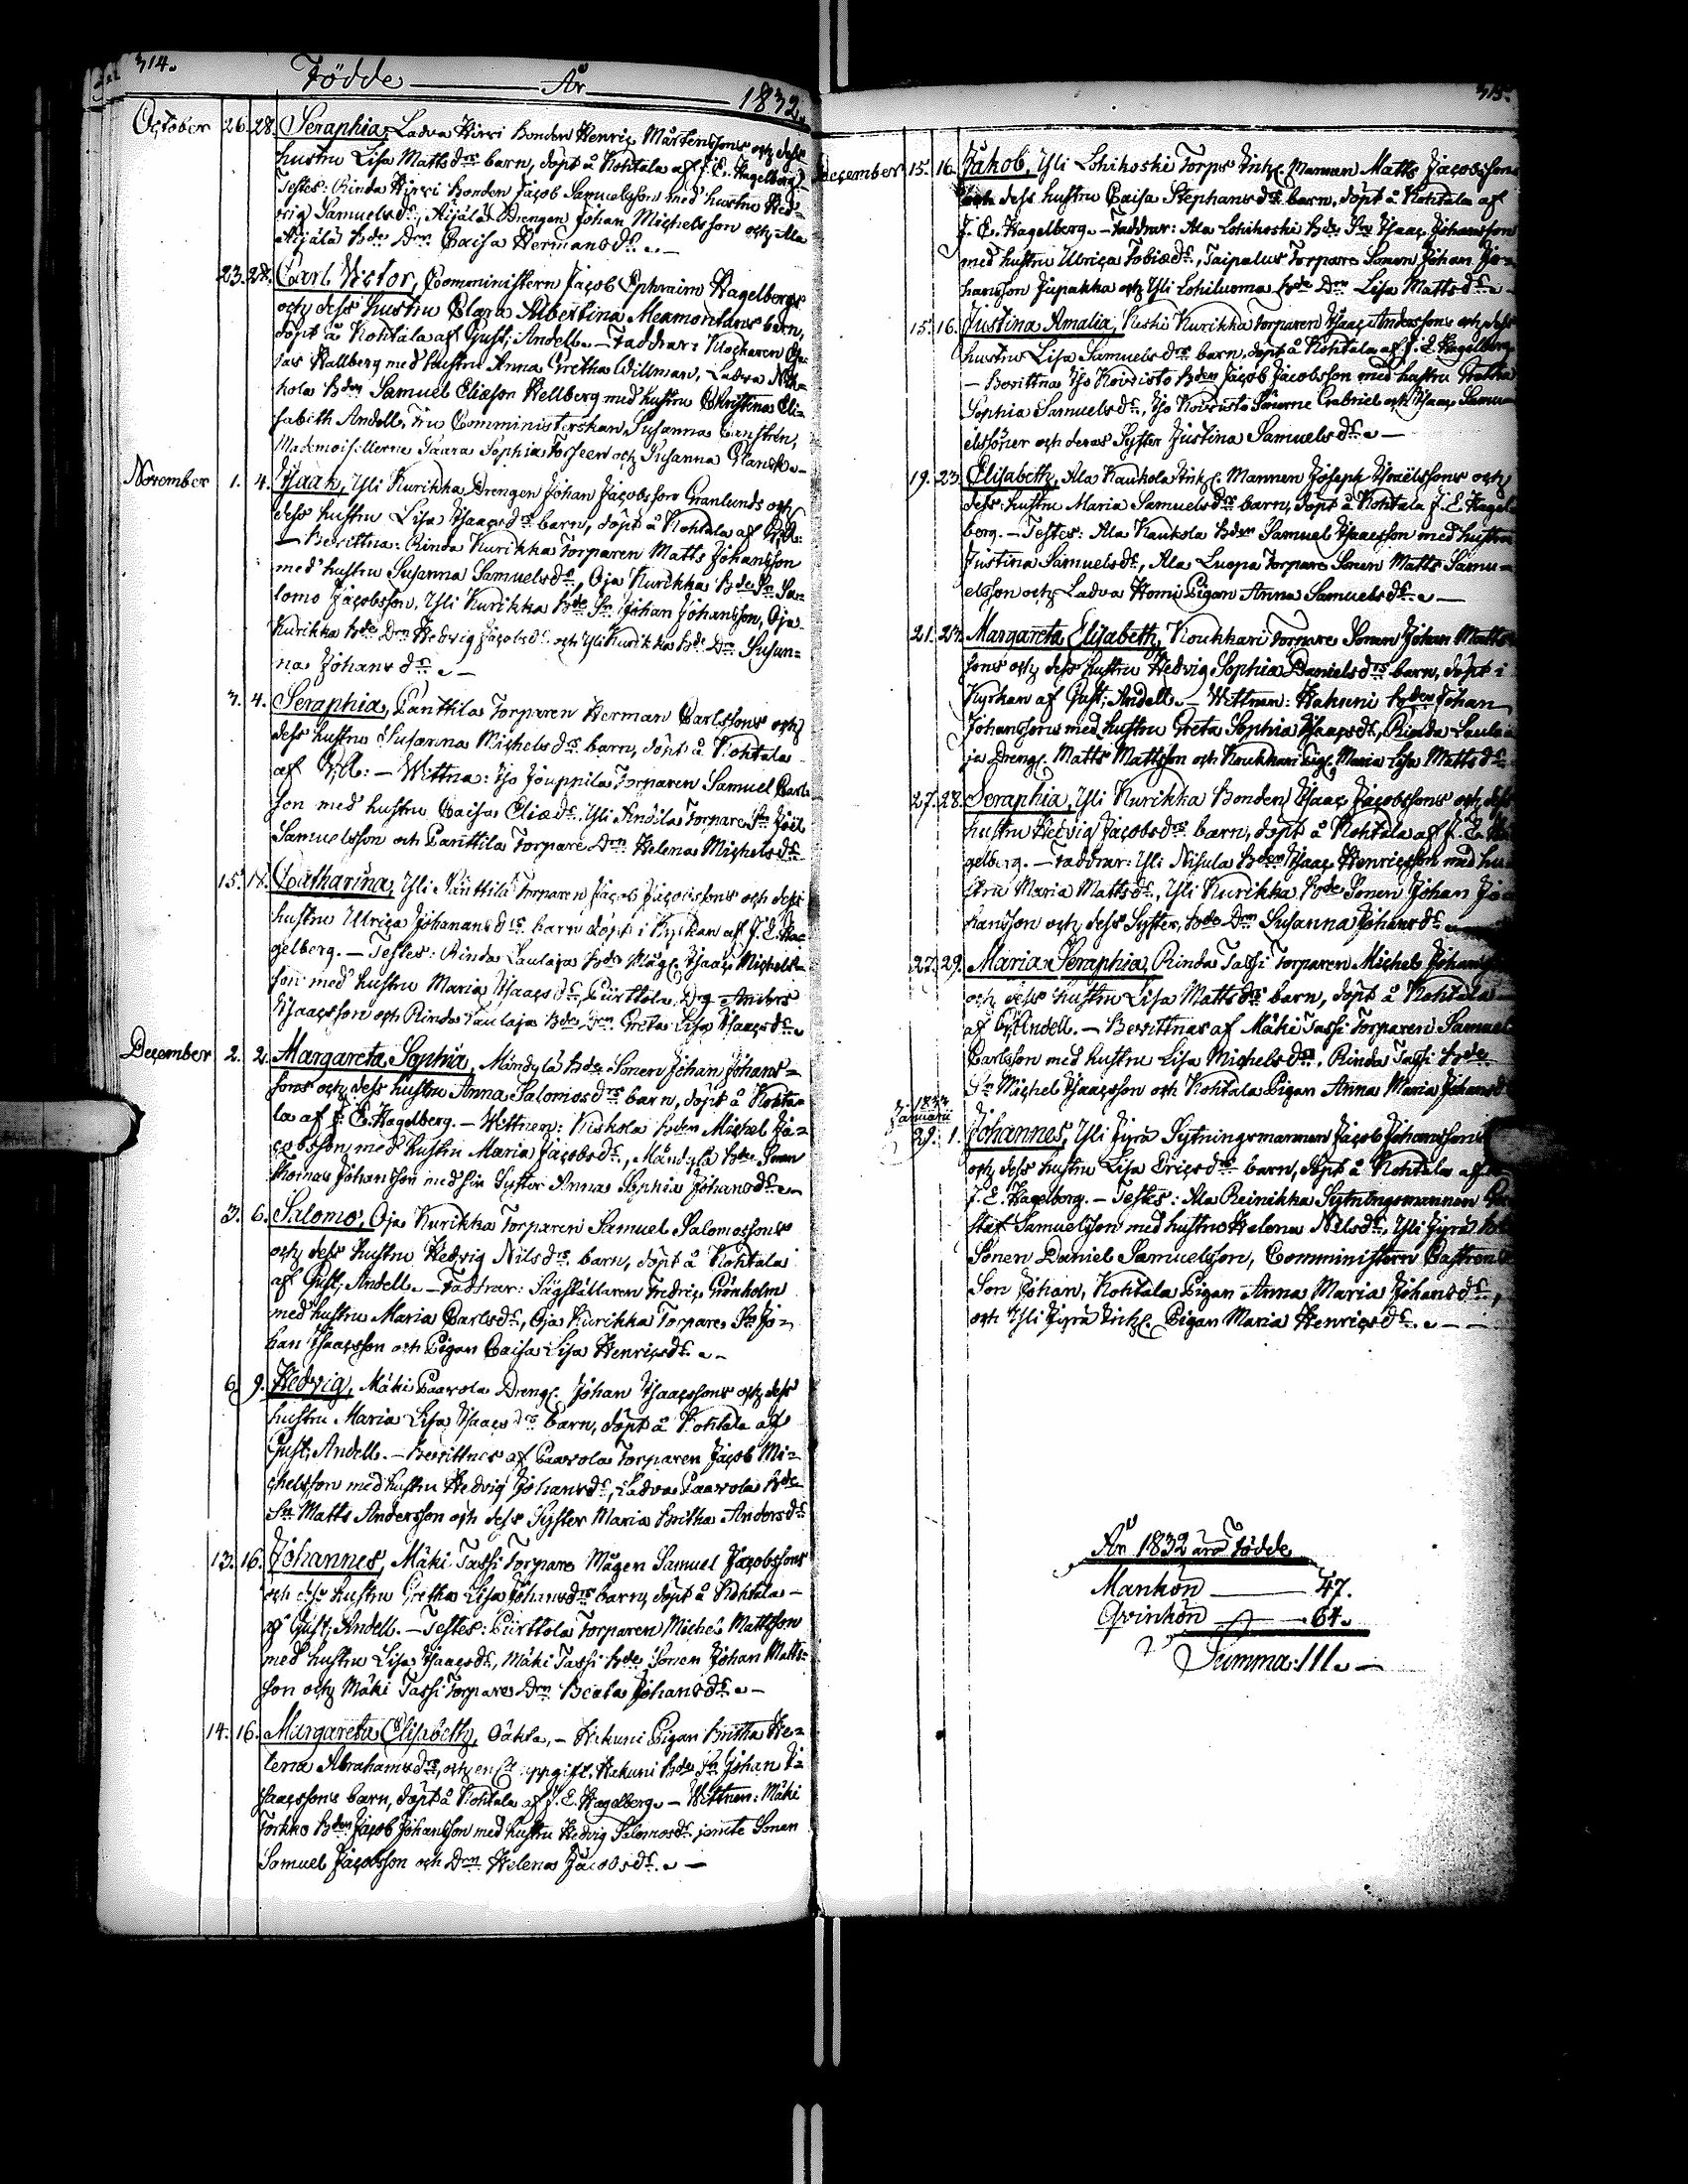 314.
Födde År 1832.
October 26. 28. Seraphia, Ladva Hirri Bonden Henriç Mårtenssons och dess
hustru Lisa Matts drs barn, döpt å Kohtala af J. E. Hagelberg.
Testes: Rinda Hirri Bonden Jacob Samuelsson med hustru Hed=
vig Samuelsdr, Äijälä Drengen Johan Michelsson och Ala
Äijälä Bde Drn Caisa Hermansdr.
23. 28. Carl Victor, Comministern Jacob Ephraim Hagelbergs
och dess hustru Clara Albertina Mexmontans barn,
döpt å Kohtala af Gust: Andell. – Faddrar: Klockaren
Hallberg med hustru Anna Gretha Willman, Ladva
kola Bden Samuel Eliæson Hellberg med hustru Christina Eli=
sabeth Andell, Fru Comministerskan Susanna
Mademoisellerne Saara Sophia Forseen och Susanna
November 1. 4. Isaak, Yli Kurikka Drengen Johan Jacobsson Granlunds och
dess hustru Lisa Isaacsdrs barn, döpt å Kohtala af
– Bevittna: Rinda Kurikka Torparen Matts Johansson
med hustru Susanna Samuelsdr, Oja Kurikka Bde Sn Sa=
lomo Jacobsson, Yli Kurikka Bde Sn Johan Johansson, Oja
Kurikka Bde Drn Hedvig Jacobsdr och Yli Kurikka Bde Drn Susan=
na Johansdr.
3. 4. Seraphia, Panttila Torparen Herman Carlssons och
dess hustru Susanna Michelsdrs barn, döpt å Kohtala
af – Wittna: Iso Jouppila Torparen Samuel Carls
son med hustru Caisa Eliædr, Yli Torpare Sn Joël
Samuelsson och Panttila Torpare Drn Helena Michelsdr
15. 18. Catharina, Yli Panttila Torparen Jacob Jacobssons och dess
hustru Ulriça Johansdrs barn döpt i Kyrkan af J. E. Ha=
gelberg. – Testes: Rinda Laulaja Bde Mågen Isaac Michels=
son med hustru Maria Isaacsdr, Pürttola Drg Anders
Isaacsson och Rinda Laulaja Bde Drn Greta Lisa Isaacsdr.
December 2. 2. Margareta Sophia, Mändylä Bde Sonen Johan Johans=
sons och dess hustru Anna Salomosdrs barn, döpt å Kohta=
la af J. E. Hagelberg. – Wittnen: Kiskola Bden Michel Ja=
cobsson med hustru Maria Jacobsdr, Mändylä Bde Sonen
Thomas Johansson med sin Syster Anna Sophia Johansdr.
3. 6. Salomo, Oja Kurikka Torparen Samuel Salomossons
och dess hustru Hedvig Nilsdrs barn, döpt å Kohtala
af Gust: Andell. – Faddrar: Sågställaren Fredriç Grönholm
med hustru Maria Carlsdr, Oja Kurikka Torpare Sn Jo=
han Isaacsson och Pigan Caisa Lisa Henricsdr.
6. 9. Hedvig, Mäki Paavola Dreng. Johan Isaacssons och dess
hustru Maria Lisa Isaacsdrs barn, döpt å Kohtala af
Gust: Andell. – Bevittnes af Paavola Torparen Jacob Mi=
chelsson med hustru Hedvig Johansdr, Ladva Paavola Bde
Sn Matts Andersson och dess Syster Maria Britha Andersdr
13. 16. Johannes, Mäki Tassi Torpare Mågen Samuel Jacobssons
och dess hustru Gretha Lisa Johansdrs barn, döpt å Kohtala –
af Gust: Andell. – Testes: Pürttola Torparen Michel Mattsson
med hustru Lisa Isaacsdr, Mäki Tassi Bde Sonen Johan Matts=
son och Mäki Tassi Torpare Drn Beata Johansdr. –
14. 16. Margareta Elisabeth, Oäkta, – Hakuni Pigan Britha He=
lena Abrahamsdrs, och enl. uppgift, Hakuni Bde Sn Johan I=
saacssons barn, döpt å Kohtala af J. E. Hagelberg. – Wittnen: Mäki
Torkko Bden Jacob Johansson med hustru Hedvig Salomosdr jemte Sonen
Samuel Jacobsson och Drn Helena Jacobsdr. –
315.
December 15. 16. Jakob, Yli Lohikoski Torps Inhs. Mannen Matts Jacobssons
och dess hustru Caisa Stephansdrs barn, döpt å Kohtala af
J. E. Hagelberg. – Faddrar: Ala Lohikoski Bde Sn Isaac Johansson
med hustru Ulriça Tobiædr, Taipalus Torpare Sonen Johan Jo=
hansson Jupakka och Yli Lohiluoma Bde Drn Lisa Mattsdr. –
15. 16. Justina Amalia, Keski Kurikka Torparen Isaac Anderssons och dess
hustru Lisa Samuelsdrs barn, döpt å Kohtala af J. E. Hagelberg
– Bevittna Iso Koivisto Bden Jacob Jacobsson med hustru
Sophia Samuelsdr, Iso Koivisto Sönerne Gabriel och Isaac Samu=
elssöner och deras Syster Justina Samuelsdr. –
19. 23. Elisabeth, Ala Kaukola Inhs. Mannen Joseph Israëlssons och
dess hustru Maria Samuelsdrs barn, döpt å Kohtala J. E. Hagel
berg. – Testes: Ala Kaukola Bden Samuel Isaacsson med hustru
Justina Samuelsdr, Ala Luopa Torpare Sonen Matts Samu=
elsson och Ladva Homi Pigan Anna Samuelsdr. –
21. 24. Margareta Elisabeth, Koukkari Torpare Sonen Johan Matts
sons och dess hustru Hedvig Sophia Danielsdrs barn, döpt i
Kyrkan af Gust: Andell. – Wittnen: Hakuni Bden Johan
Johansson med hustru Greta Sophia Isaacsdr, Rinda Laula
ja Dreng. Matts Mattsson och Koukkari Pig. Maria Lisa Mattsdr.
27. 28. Seraphia, Yli Kurikka Bonden Isaac Jacobssons och dess
hustru Hedvig Jacobsdrs barn, döpt å Kohtala af J. E. Ha
gelberg. – Faddrar: Yli Nisula Bden Isaac Henricsson med hu=
stru Maria Mattsdr, Yli Kurikka Bde Sonen Johan Jo
hansson och dess Syster, Bde Drn Susanna Johansdr.
27. 29. Maria Seraphia, Rinda Tassi Torparen Michel
och dess hustru Lisa Mattsdrs barn, döpt å Kohtala
af G. Andell. – Bevittnas af Mäki Tassi Torparen Samuel
Carlsson med hustru Lisa Michelsdr, Rinda Tassi Bde
Sn Michel Isaacsson och Kohtala Pigan Anna Maria Johansd
1833
Januarii
29. 1. Johannes, Yli Jyrä Sytningsmannen Jacob Johanssons
och dess hustru Lisa Ericsdrs barn, döpt å Kohtala af
J. E. Hagelberg. – Testes: Ala Reinikka Sytningsmannen Gu
staf Samuelsson med hustru Helena Nilsdr, Yli Jyrä Bde
Sonen Daniel Samuelsson, Comministern Castrens
Son Johan, Kohtala Pigan Anna Maria Johansdr,
och Yli Jyrä Inhs. Pigan Maria Henricsdr. – –
År 1832 äro Födde
Mankön 47.
Qvinkön 64.
Summa 111. –